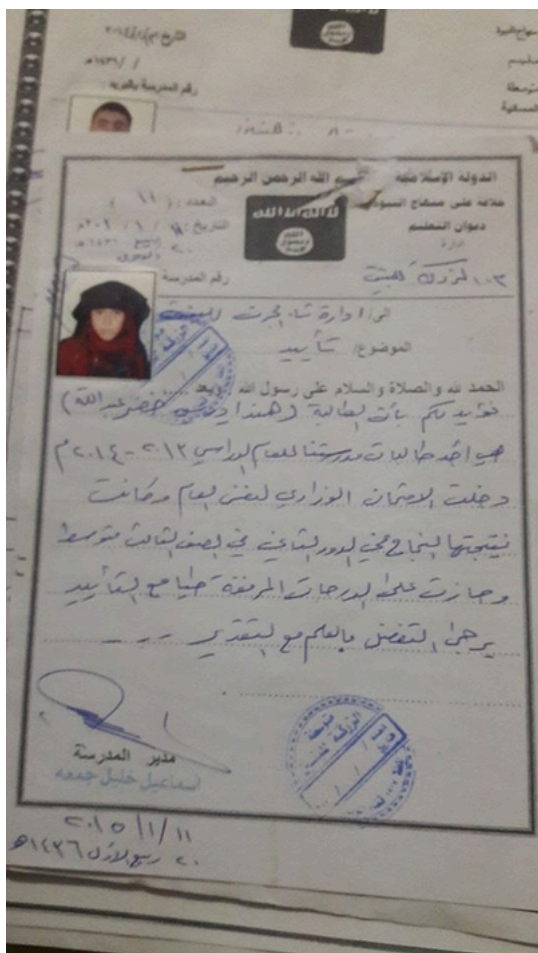 منهاج النبوة
متوسطة
المسائية
رقم المدرسة بالتربية
الدولة الإسلامية
بسم الله الرحمن الرحيم
خلافة على منهاج النبوة
ديوان التعليم
إدارة
العدد: ( ١١ )
التاريخ:
لا إله إلا الله
الله
رسول
محمد
رقم المدرسة
الى/ ادارة
للبنات
الموضوع/ تأييد
الحمد لله والصلاة والسلام على رسول الله وبعد ....
نؤيد لكم بأن الطالبة (هند
خضر عبدالله)
هي أحد طالبات مدرستنا للعام الدراسي ٢٠١٣ - ٢٠١٤ م
دخلت الامتحان الوزاري لنفس العام وكانت
نتيجتها النجاح في الدور الثاني في الصف الثالث متوسط
وحازت على الدرجات المرفقة طيا مع التأييد
يرجى التفضل بالعلم مع التقدير ...
مدير المدرسة
اسماعيل خليل جمعه
٢٠١٥/١/١١
٢٠ ربيع الاول ١٤٣٦هـ